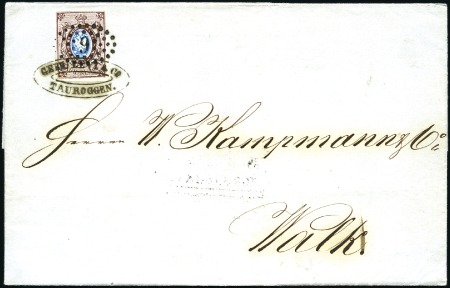 & Co
TAUROGGEN.
Herren W. Kampmann & Co
Walk